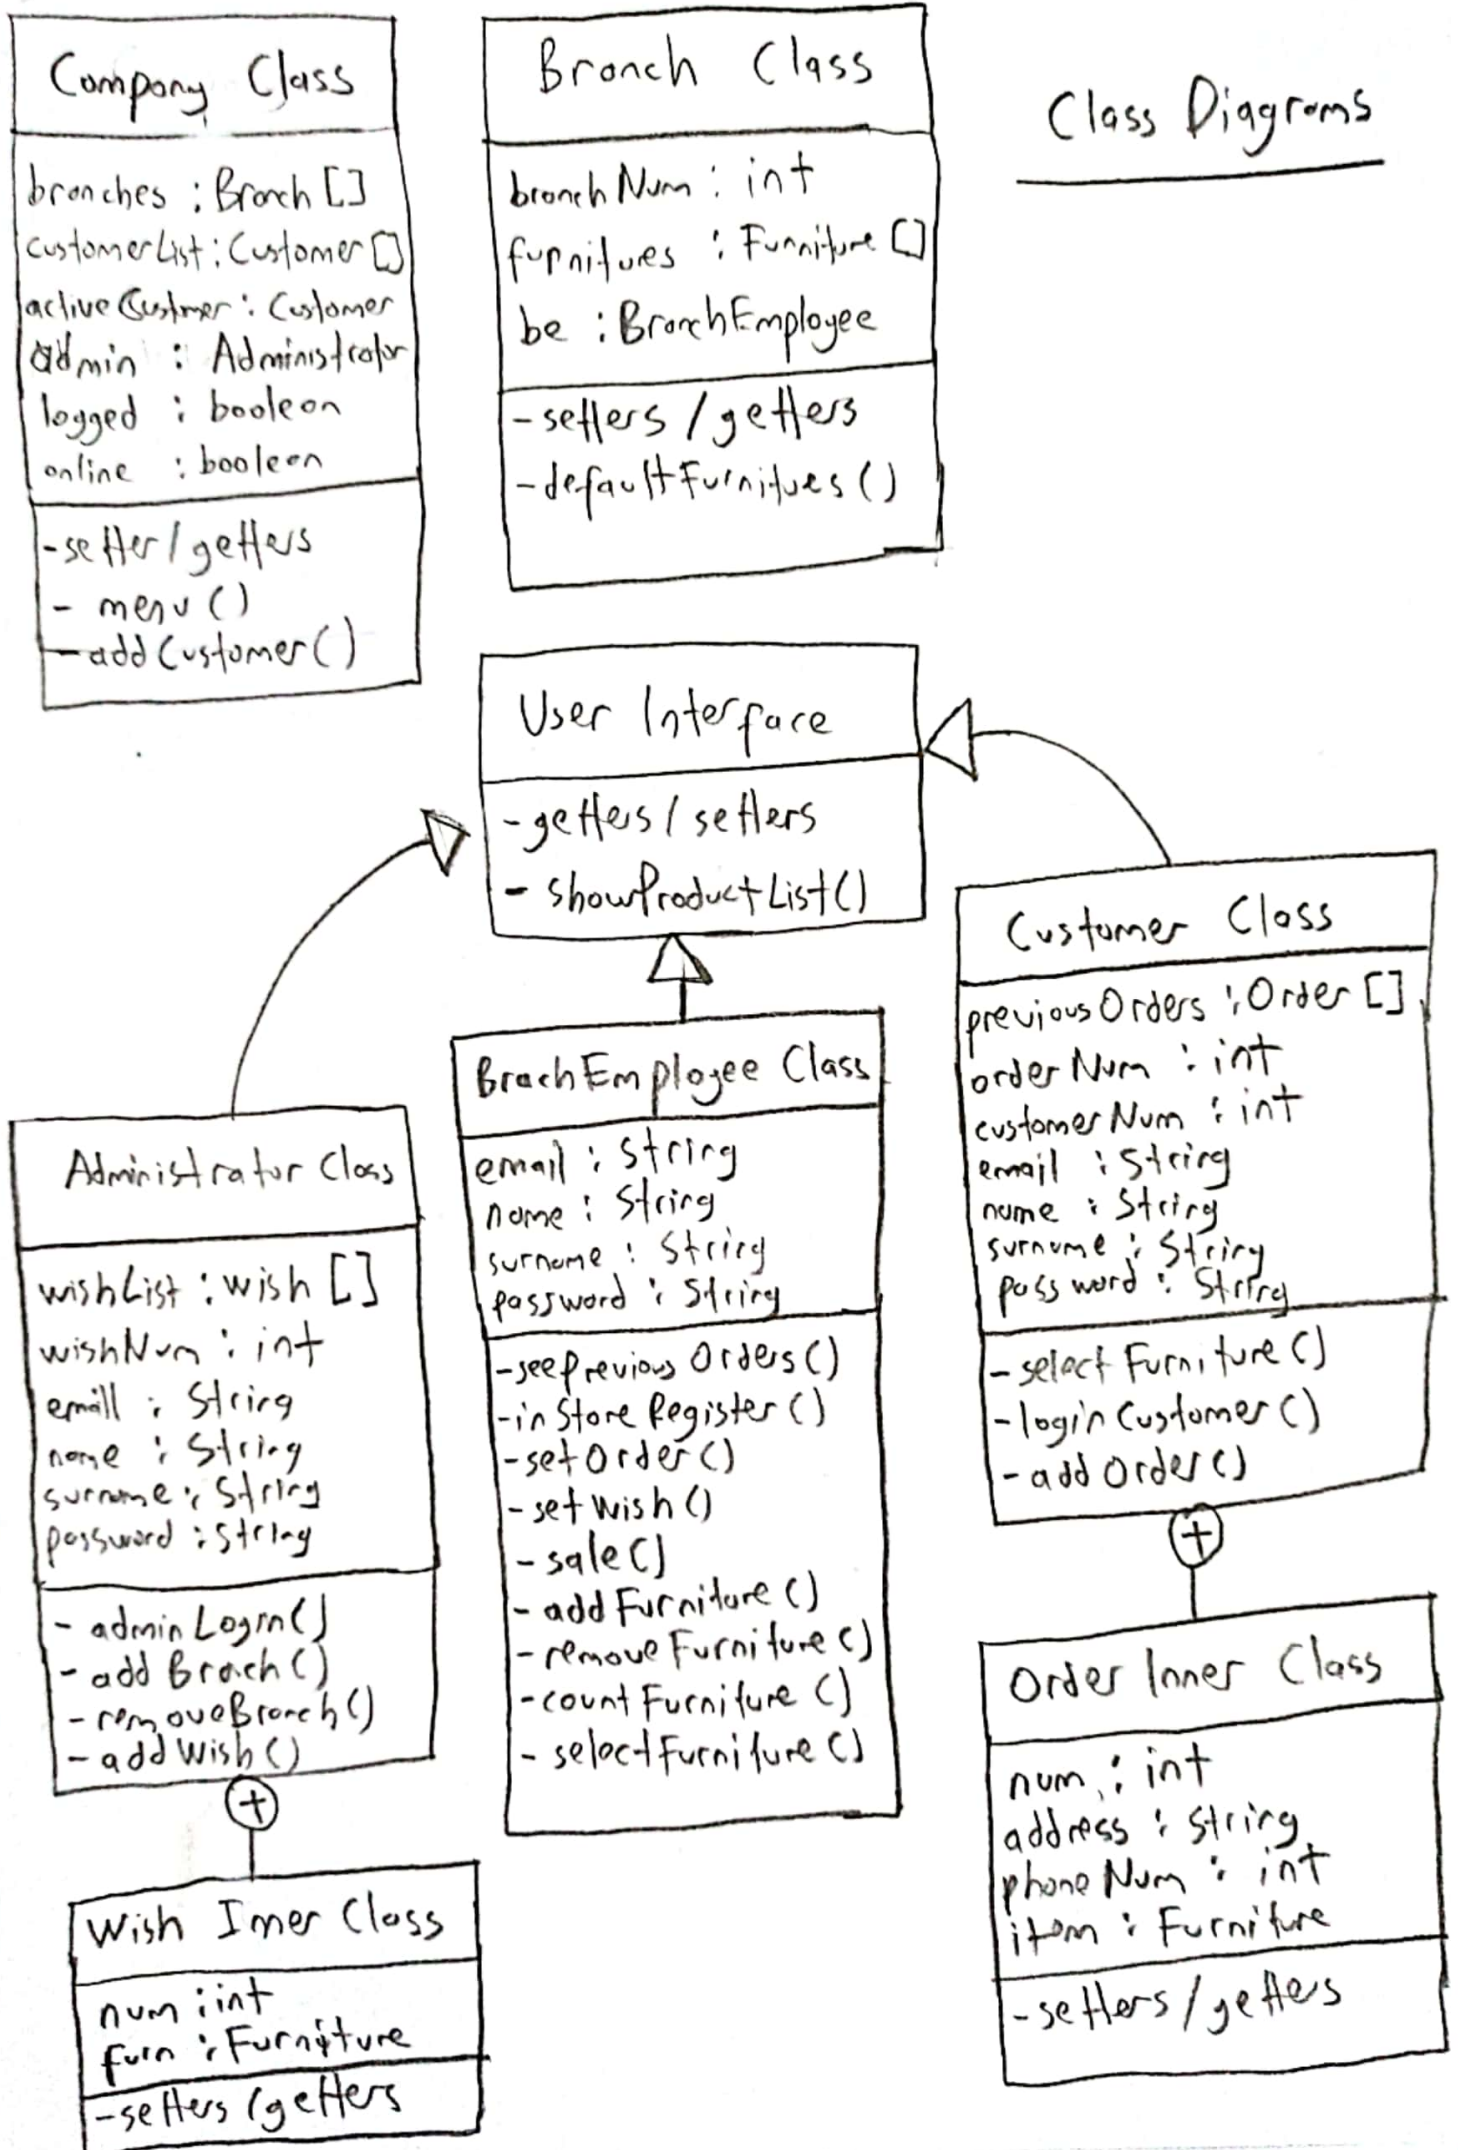 Company Class
branches : Branch []
customerList : Customer []
activeCustmer : Customer
admin : Administrator
logged : boolean
online : boolean
-setter/getters
- menu ()
-addCustomer()
Branch Class
branchNum : int
furnitures : Furniture []
be : BranchEmployee
-setters /getters
-defaultFurnitues()
Class Diagrams
User Interface
-getters/setters
- showProductList()
Administrator Class
wishList : wish []
wishNum : int
emaill : String
name : String
surname : String
password : String
- adminLogin()
- add Brach()
- removeBranch()
- addWish()
Wish Inner Class
num : int
furn : Furniture
-setters/getters
BrachEmployee Class
email : String
name : String
surname : String
password : String
-seePreviousOrders()
-inStoreRegister()
-setOrder()
-setWish()
- sale()
- addFurniture()
- removeFurniture()
-countFurniture()
- selectFurniture()
Customer Class
previousOrders : Order []
orderNum : int
customerNum : int
email : String
name : String
surname : String
password : String
-selectFurniture()
-loginCustomer()
-addOrder()
Order Inner Class
num : int
address : String
phoneNum : int
item : Furniture
-setters/getters